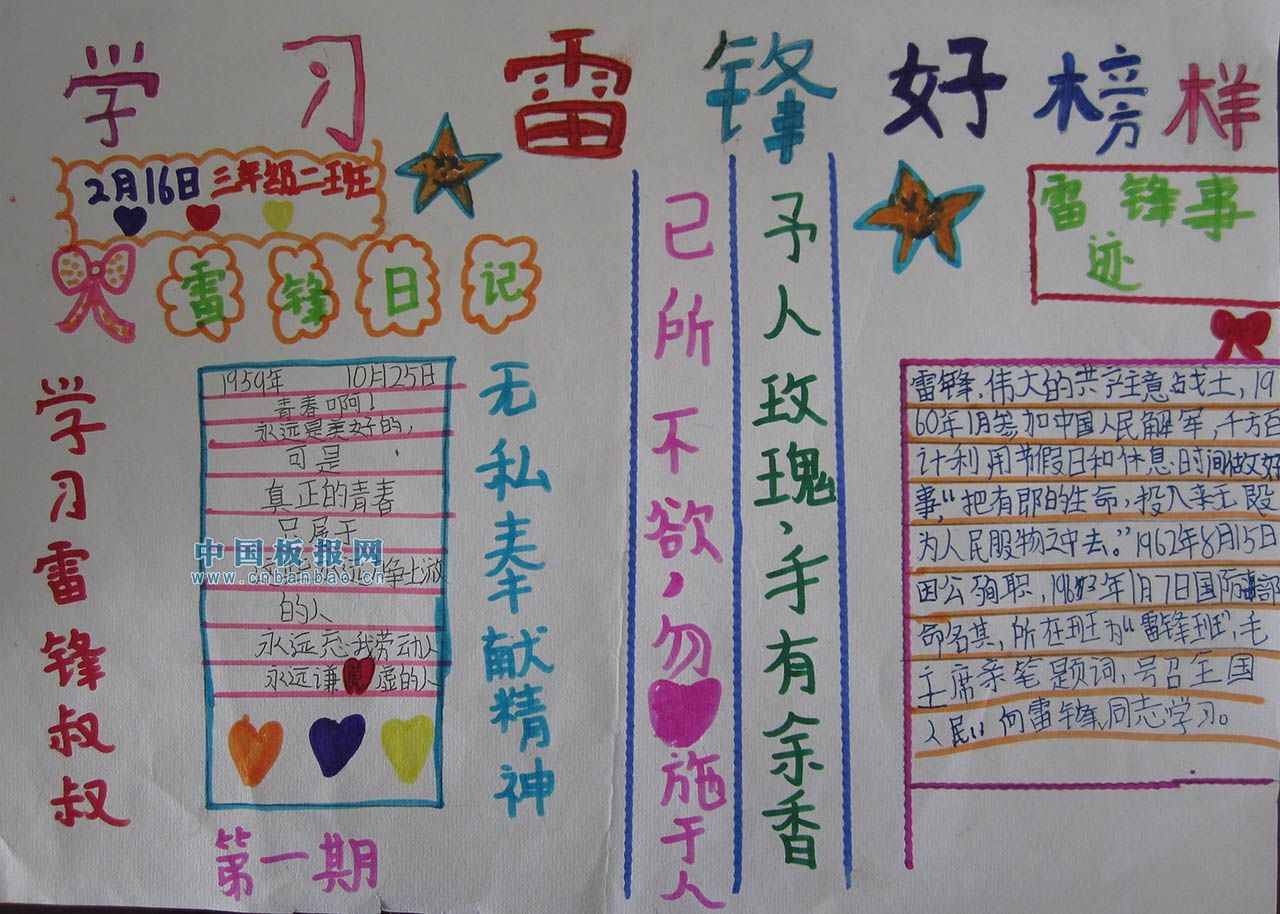 学习雷锋好榜样
2月16日 三年级二班
雷锋日记
学习雷锋叔叔
1959年 10月25日
青春啊！
永远是美好的，
可是
真正的青春
只属于
中国板报网
www.cnbanbao.cn
争上游
的人
永远忘我劳动人
永远谦虚的人
无私奉献精神
第一期
己所不欲，勿施于人
予人玫瑰，手有余香
雷锋事
迹
雷锋，伟大的共字主意占戈士，19
60年1月参加中国人民解军，千方百
计利用节假日和休息时间做好
事，“把有郎的生命，投入
为人民服物之中去。”1962年8月15日
因公殉职，196 年1月7日国防部
命名其，所在班为“雷锋班”，毛
主席亲笔题词，号召全国
人民 向雷锋同志学习。